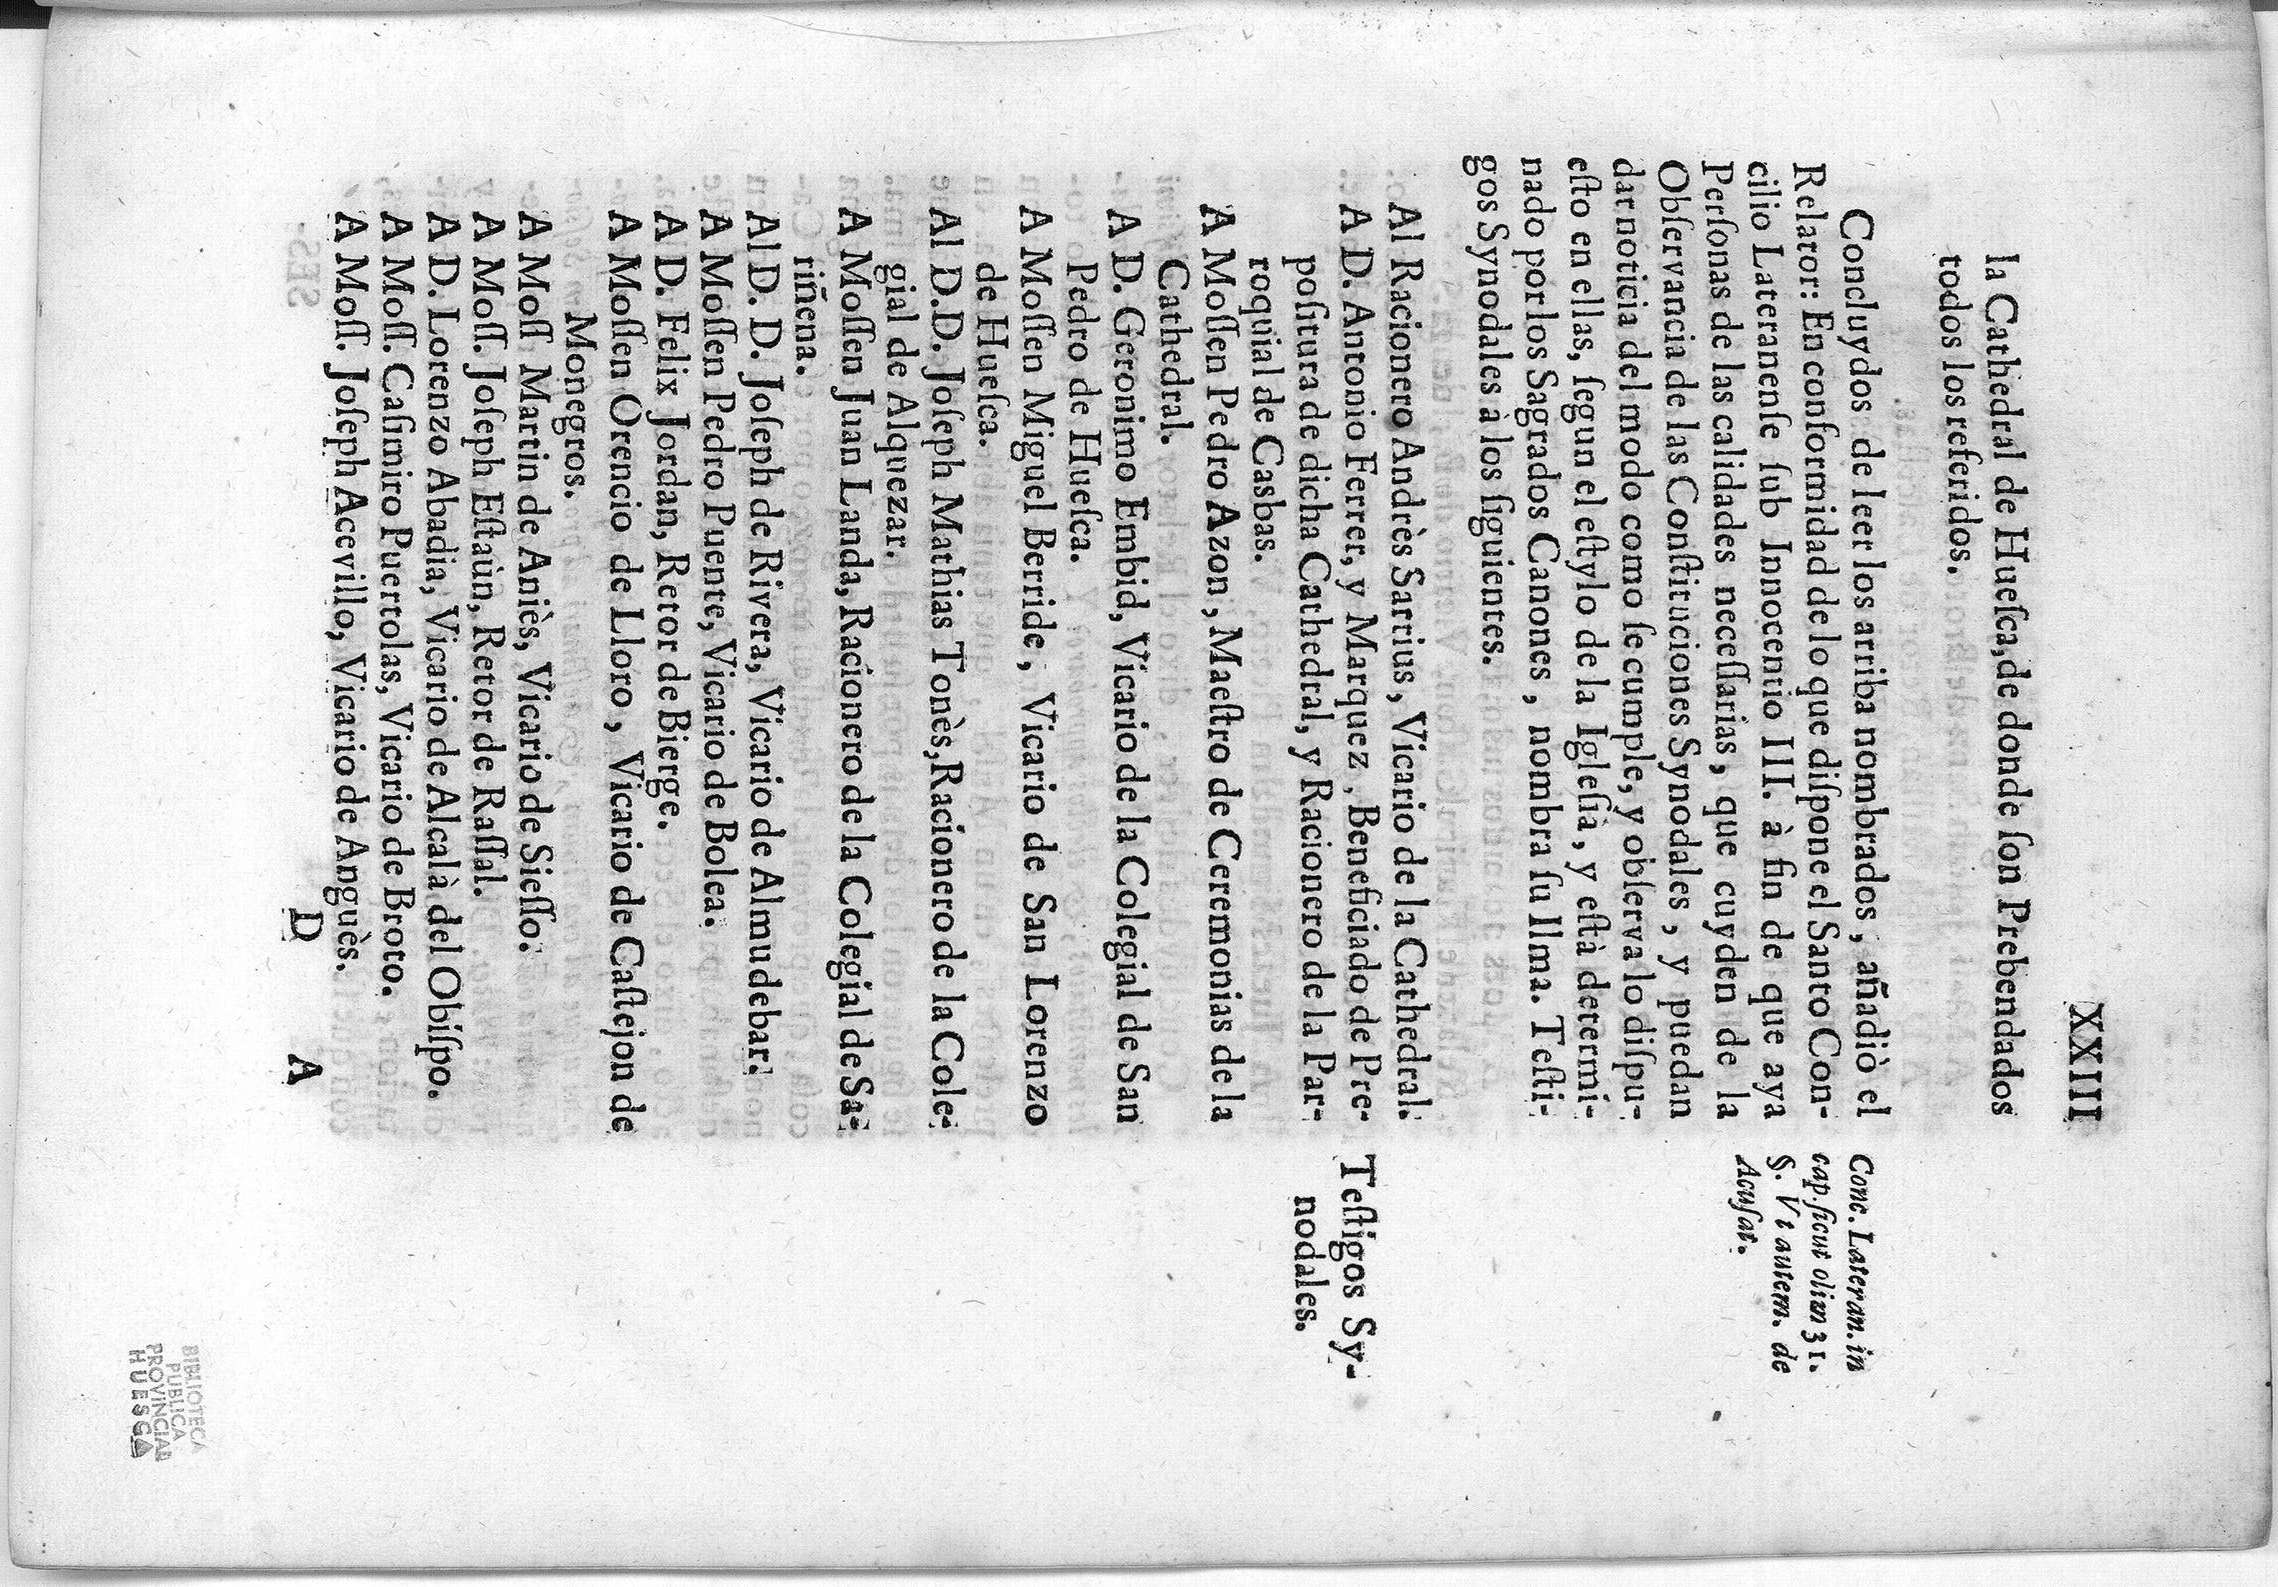 XXIII
la Cathedral de Hueſca, de donde ſon Prebendados
todos los referidos.
Concluydos de leer los arriba nombrados, añadiò el
Relator: En conformidad de lo que diſpone el Santo Con-
cilio Lateranenſe ſub Innocentio III. à fin de que aya
Perſonas de las calidades neceſſarias, que cuyden de la
Obſervancia de las Conſtituciones Synodales, y puedan
dar noticia del modo como ſe cumple, y obſerva lo diſpu-
eſto en ellas, ſegun el eſtylo de la Igleſia, y eſtà determi-
nado por los Sagrados Canones, nombra ſu Ilma. Teſti-
gos Synodales à los ſiguientes.
Conc. Lateran. in
cap. ſicut olim 31.
§. Vt autem. de
Acuſat.
Al Racionero Andrès Sarrius, Vicario de la Cathedral.
A D. Antonio Ferrer, y Marquez, Beneficiado de Pre-
poſitura de dicha Cathedral, y Racionero de la Par-
roquial de Casbas.
Teſtigos Sy-
nodales.
A Moſſen Pedro Azon, Maeſtro de Ceremonias de la
Cathedral.
A D. Geronimo Embid, Vicario de la Colegial de San
Pedro de Hueſca.
A Moſſen Miguel Berride, Vicario de San Lorenzo
de Hueſca.
Al D.D. Joſeph Mathias Tonès, Racionero de la Cole-
gial de Alquezar.
A Moſſen Juan Landa, Racionero de la Colegial de Sa-
riñena.
Al D. D. Joſeph de Rivera, Vicario de Almudebar.
A Moſſen Pedro Puente, Vicario de Bolea.
A D. Felix Jordan, Retor de Bierge.
A Moſſen Orencio de Lloro, Vicario de Caſtejon de
Monegros.
A Moſſ Martin de Aniès, Vicario de Sieſſo.
A Moſſ. Joſeph Eſtaùn, Retor de Raſſal.
A D. Lorenzo Abadia, Vicario de Alcalà del Obiſpo.
A Moſſ. Caſimiro Puertolas, Vicario de Broto.
A Moſſ. Joſeph Acevillo, Vicario de Anguès.
D A
BIBLIOTECA
PUBLICA
PROVINCIAL
HUESCA